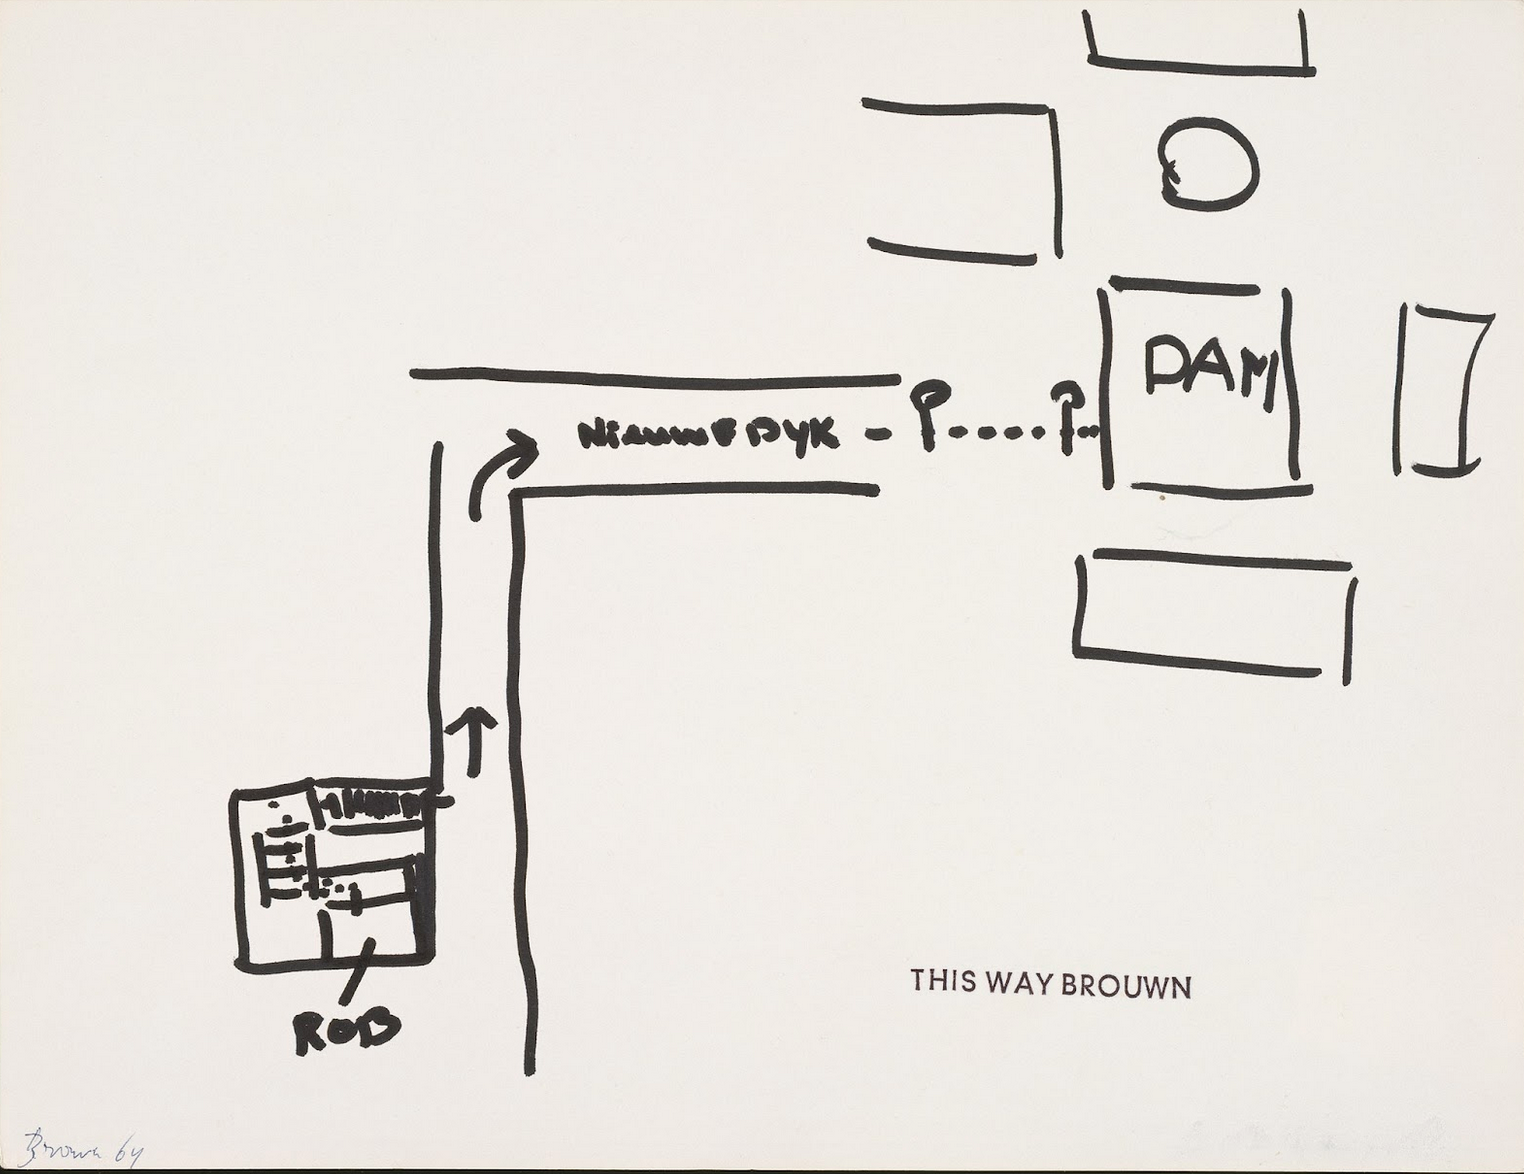 DAM
NIEUWEDYK
ROB
THIS WAY BROUWN
Brouwn 64